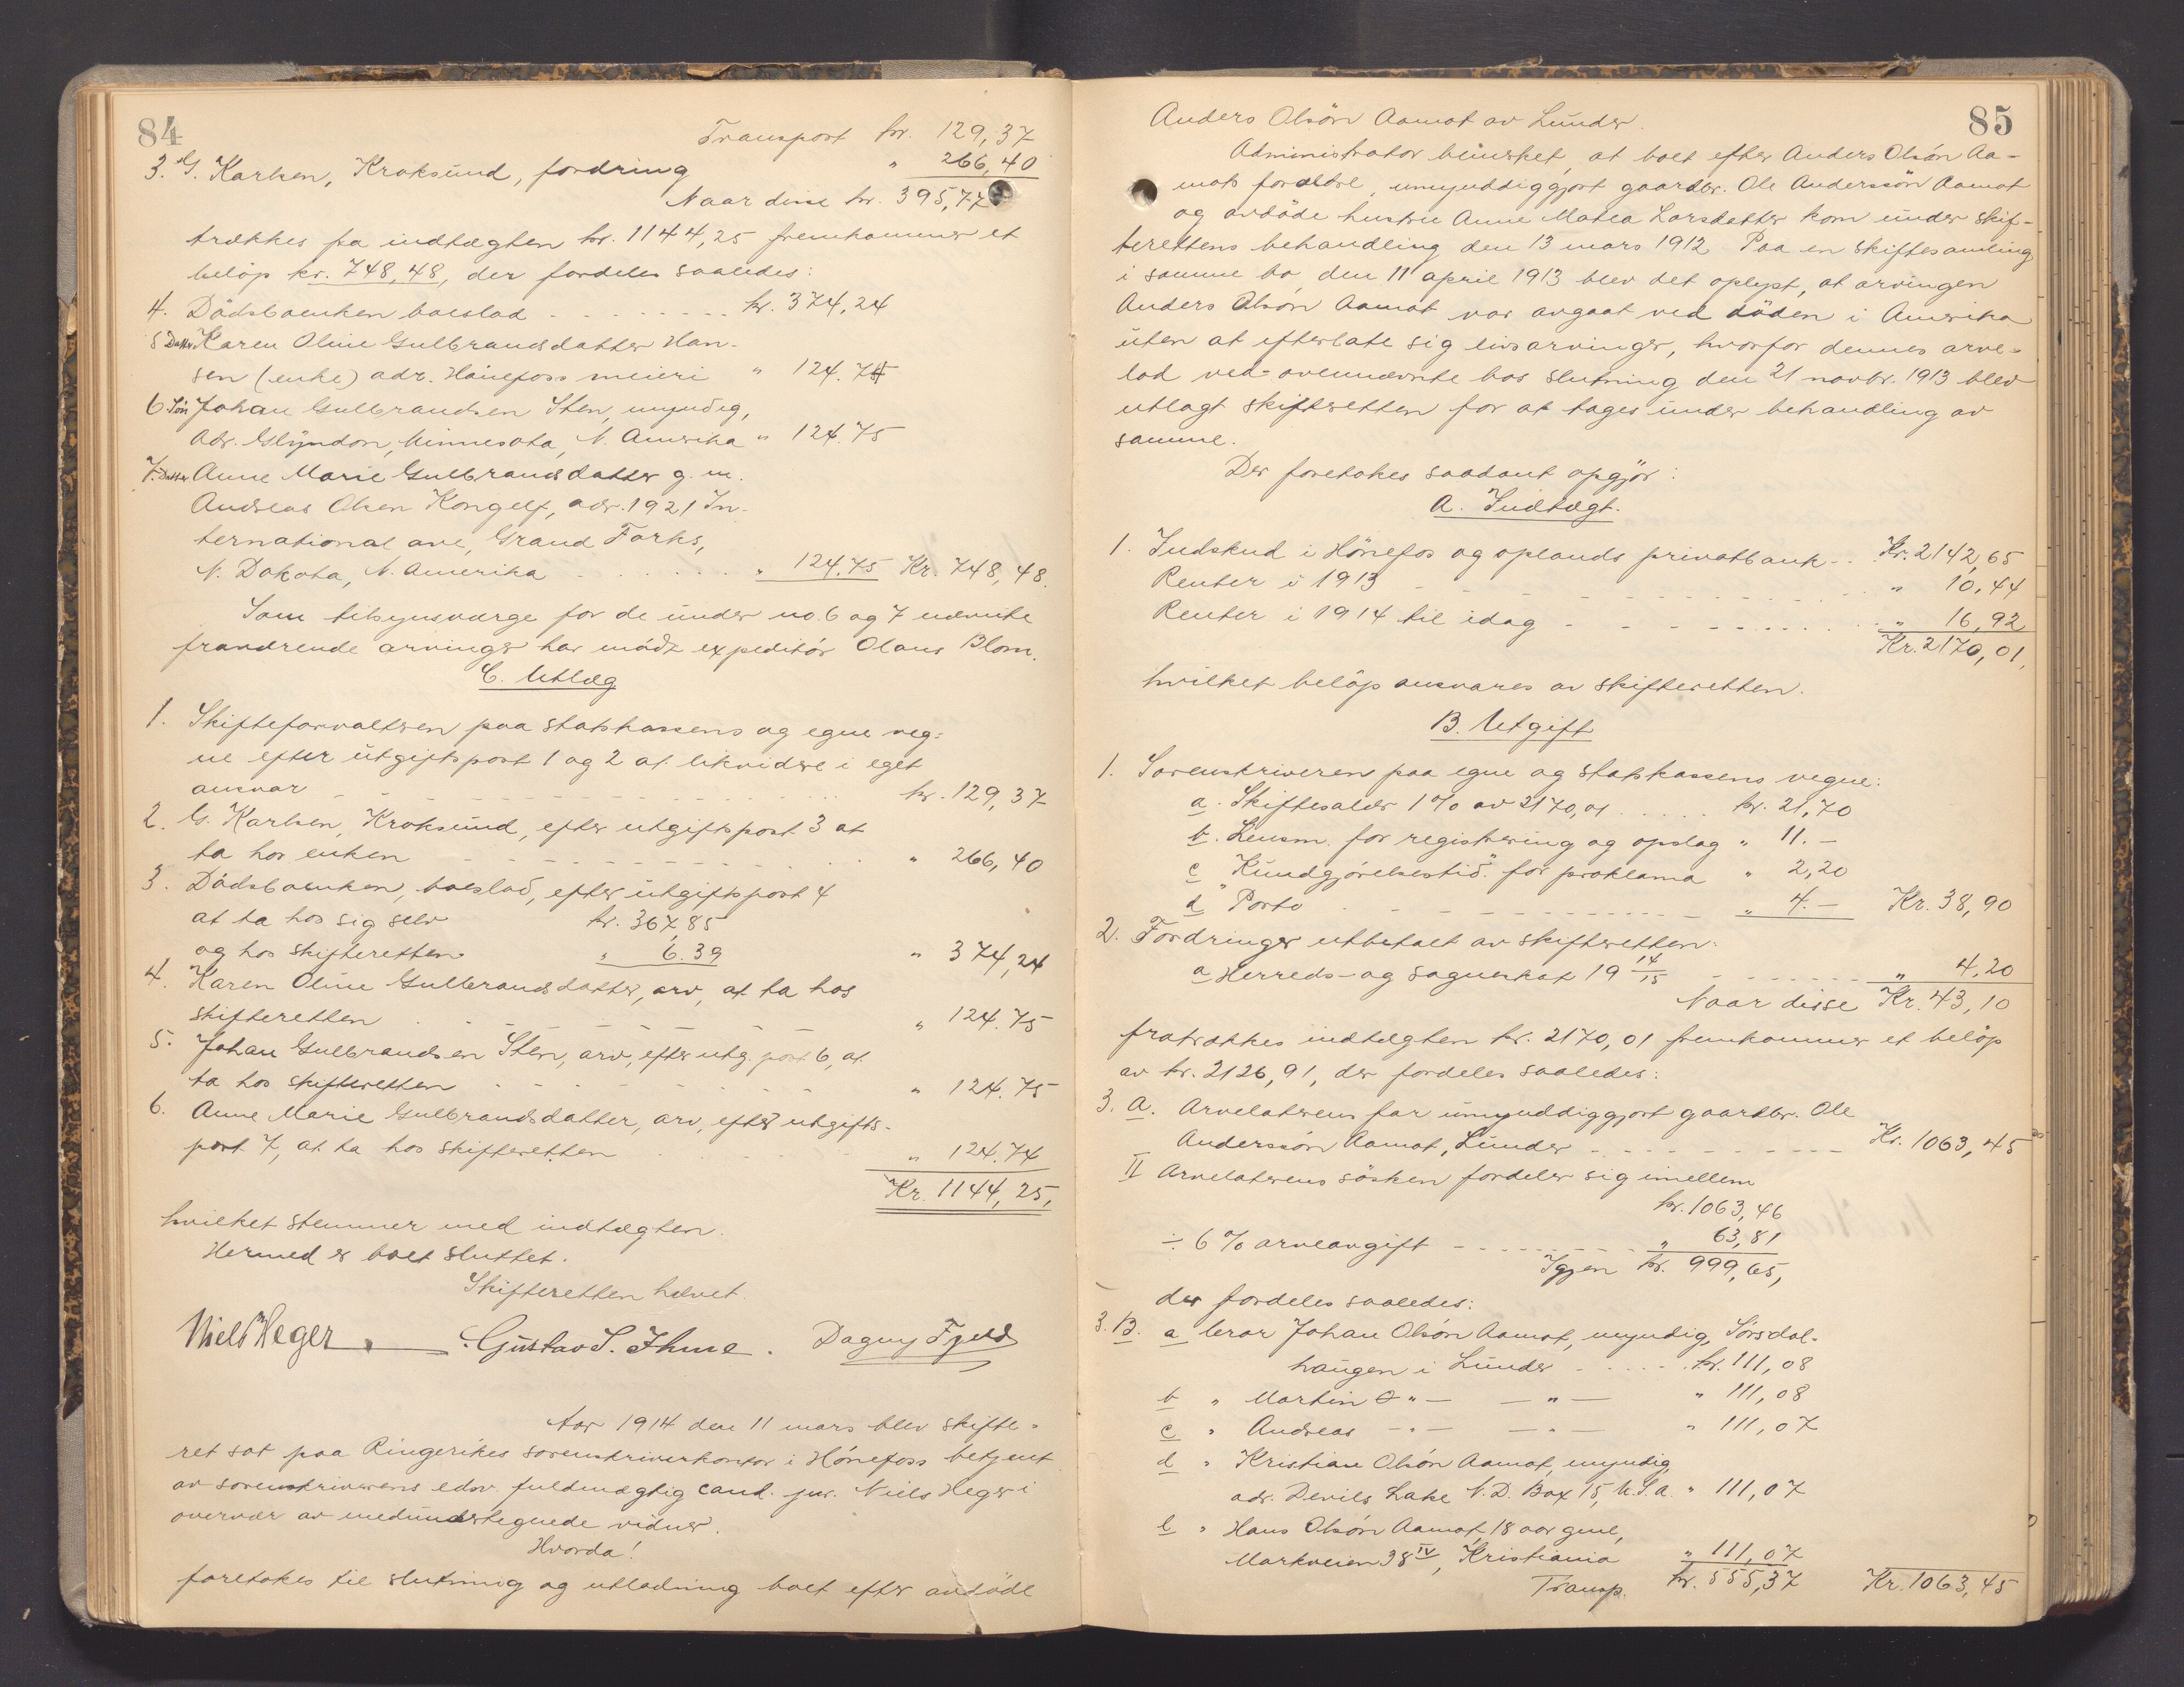 84
Transport kr. 129,37
3. G. Karlsen, Kroksund, fordring " 266,40
Naar disse kr. 395,77
trækkes fra indtægten kr. 1144,25 fremkommer et
beløp kr. 748,48, der fordeles saaledes:
4. Dödsboenken boeslod - - - - - - - - kr. 374,24
5 Datter Karen Oline Gulbrandsdatter Han-
sen (enke) adr. Hönefoss meieri " 124.74
6 Sön Johan Gulbrandsen Sten, myndig,
adr. Glyndon, Minnesota, N. Amerika " 124.75
7. Datter Anne Marie Gulbrandsdatter g. m.
Andreas Olsen Kongelf, adr. 1921 In-
ternational ave, Grand Forks,
N. Dakota, N. Amerika - - - - - - " 124.75 Kr. 748,48.
Som tilsynsværge for de under no. 6 og 7 nævnte
fraværende arvinger har mødt expeditör Olaus Blom.
C. Utlæg
1. Skifteforvalteren paa statskassens og egne veg-
ne efter utgiftspost 1 og 2 at likvidere i eget
ansvar - - - - - - kr. 129,37
2. G. Karlsen, Kroksund, efter utgiftspost 3 at
ta hos enken - - - - - - " 266,40
3. Dödsboenken, boeslod, efter utgiftspost 4
at ta hos sig selv kr. 367,85
og hos skifteretten " 6.39 " 374,24
4. Karen Oline Gulbrandsdatter, arv, at ta hos
skifteretten - - - - - - " 124.75
5. Johan Gulbrandsen Sten, arv, efter utg. post 6, at
ta hos skifteretten - - - - - - " 124.75
6. Anne Marie Gulbrandsdatter, arv, efter utgifts-
post 7, at ta hos skifteretten - - - - - - " 124.74
Kr. 1144,25,
hvilket stemmer med indtægten.
Hermed er boet sluttet.
Skifteretten hævet.
Niels Heger. Gustav S. Ihme. Dagny Fjeld
Aar 1914 den 11 mars blev skifte-
ret sat paa Ringerikes sorenskriverkontor i Hönefoss betjent
av sorenskriverens edsv. fuldmægtig cand. jur. Niels Heger i
overvær av medundertegnede vidner.
Hvorda!
foretokes til slutning og utlodning boet efter avdöde
85
Anders Olsön Aamot av Lunder.
Administrator bemerket, at boet efter Anders Olsön Aa-
mots forældre, umyndiggjort gaardbr. Ole Anderssön Aamot
og avdöde hustru Anne Matea Larsdatter kom under skif-
terettens behandling den 13 mars 1912. Paa en skiftesamling
i samme bo den 11 april 1913 blev det oplyst, at arvingen
Anders Olsön Aamot var avgaat ved döden i Amerika
uten at efterlate sig livsarvinger, hvorfor dennes arve-
lod ved ovennævnte bos slutning den 21 novbr. 1913 blev
utlagt skifteretten for at tages under behandling av
samme.
Der foretokes saadant opgjör:
A. Indtægt.
1. Indskud i Hönefos og oplands privatbank - . Kr. 2142,65
Renter i 1913 - - - - - - " 10,44
Renter i 1914 til idag - - - - - - " 16,92
Kr. 2170,01,
hvilket belöp ansvares av skifteretten.
B. Utgift
1. Sorenskriveren paa egne og statskassens vegne:
a. Skiftesalær 1% av 2170,01 . . . . . kr. 21,70
b. Lensm. for registrering og opslag " 11.-
c "Kundgjörelsestid." for proklama " 2,20
d " Porto - - - - - - " 4.- Kr. 38,90
2. Fordringer utbetalt av skifteretten:
a Herreds- og sogneskat 19 14/15 - - - - - - " 4,20
Naar disse Kr. 43,10
fratrækkes indtægten kr. 2170,01 fremkommer et belöp
av kr. 2126,91, der fordeles saaledes:
3. A. Arvelaterens far umyndiggjort gaardbr. Ole
Anderssön Aamot, Lunder - - - - - - Kr. 1063,45
II Arvelaterens sösken fordeler sig imellem
kr. 1063,46
÷ 6% arveavgift - - - - - - " 63,81
Igjen kr. 999,65,
der fordeles saaledes:
3. B. a bror Johan Olsön Aamot, myndig, Sörsdal-
haugen i Lunder - . . . . . kr. 111,08
b " Martin O " — — " — " 111,08
c " Andreas — " — — " — " 111,07
d " Kristian Olsön Aamot, myndig,
adr. Devils Lake N.D. Box 15, U.S.A. " 111,07
e " Hans Olsön Aamot, 18 aar gml,
Markveien 38 IV, Kristiania " 111,07
Transp. kr. 555,37 Kr. 1063,45